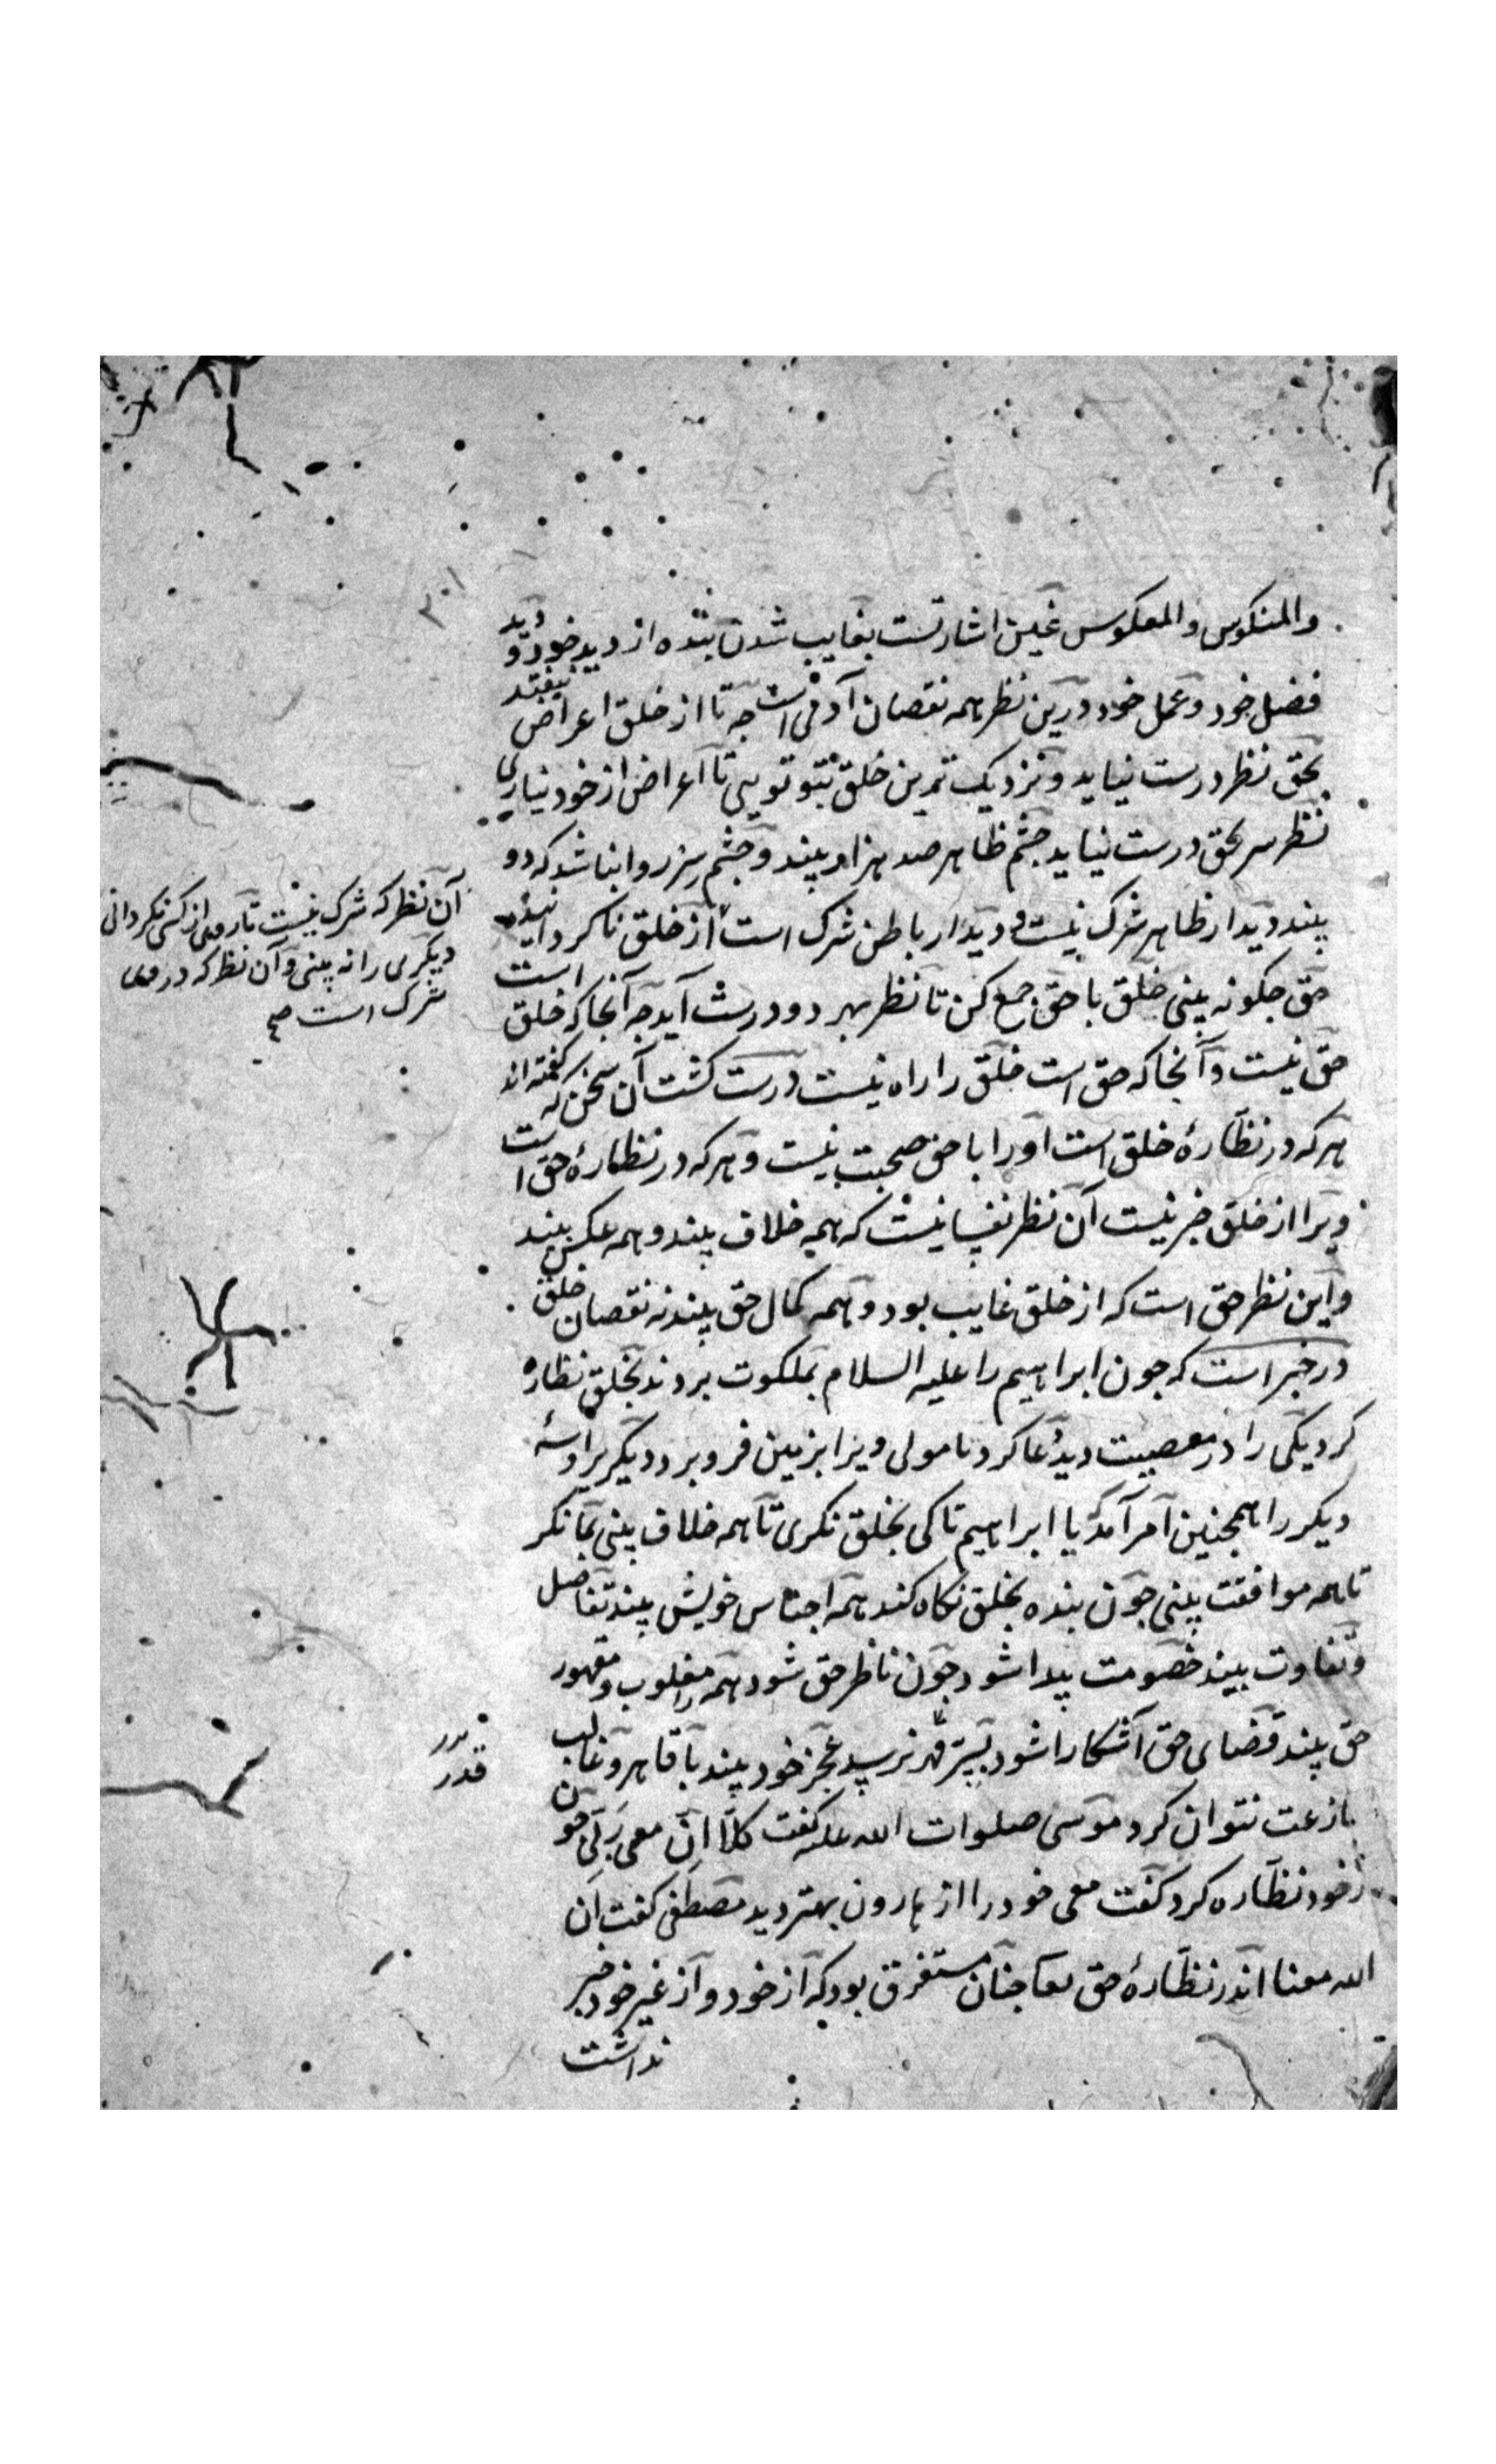 والمنکوس والمعکوس غیبن اشارتست بغایب شدن بنده از دید خود و دید
فضل خود و عمل خود و درین نظر همه نقصان آدمی است جه تا از خلق اعراض نیفتد
بحق نظر درست نیاید و نزدیک ترین خلق بتو تویی تا اعراض از خود نیاری
نظر سر بحق درست نیاید جشم ظاهر صد هزار بیند و جشم سر روا نباشد که دو
بیند دیدار ظاهر شرک نیست و دیدار باطن شرک است از خلق نا کردانیده
حق جکونه بینی خلق با حق جمع کن تا نظر بهر دو درست آید جه آنجا که خلق است
حق نیست و آنجا که حق است خلق را راه نیست درست کشت آن سخن که کفته اند
هر که در نظارۀ خلق است او را با حق صحبت نیست و هر که در نظارۀ حق است
ویرا از خلق خبر نیست آن نظر نفسانیست که همه خلاف بیند و همه عکس بیند
و این نظر حق است که از خلق غایب بود و همه کمال حق بیند نه نقصان خلق
در خبر است که جون ابراهیم را علیه السلام بملکوت بردند بخلق نظاره
کرد یکی را در معصیت دید دعا کرد تا مولی ویرا بزمین فرو برد دیکر برا
دیکر را همجنین امر آمد یا ابراهیم تا کی بخلق نکری تا همه خلاف بینی بما نکر
تا همه موافقت بینی جون بنده بخلق نکاه کند همه اجناس خویش بیند تفاضل
و تفاوت بیند خصومت پیدا شود جون ناظر حق شود همه را مغلوب و مقهور
حق بیند قضای حق آشکارا شود بسر قهر برسید عجز خود بیند با قاهر و غالب
بازعت نتوان کرد موسی صلوات الله علیه کفت کلا ان معی ربی جون
از خود نظاره کرد کفت معی خود را از هارون بهتر دید مصطفی کفت ان
الله معنا اندر نظارۀ حق جنان مستغرق بود که از خود و از غیر خود خبر
نداشت
۳۰۱
آن نظر که شرک نیست تا روی از کسی نکردانی
دیکری را نه بینی و آن نظر که در وی
شرک است صح
قدر